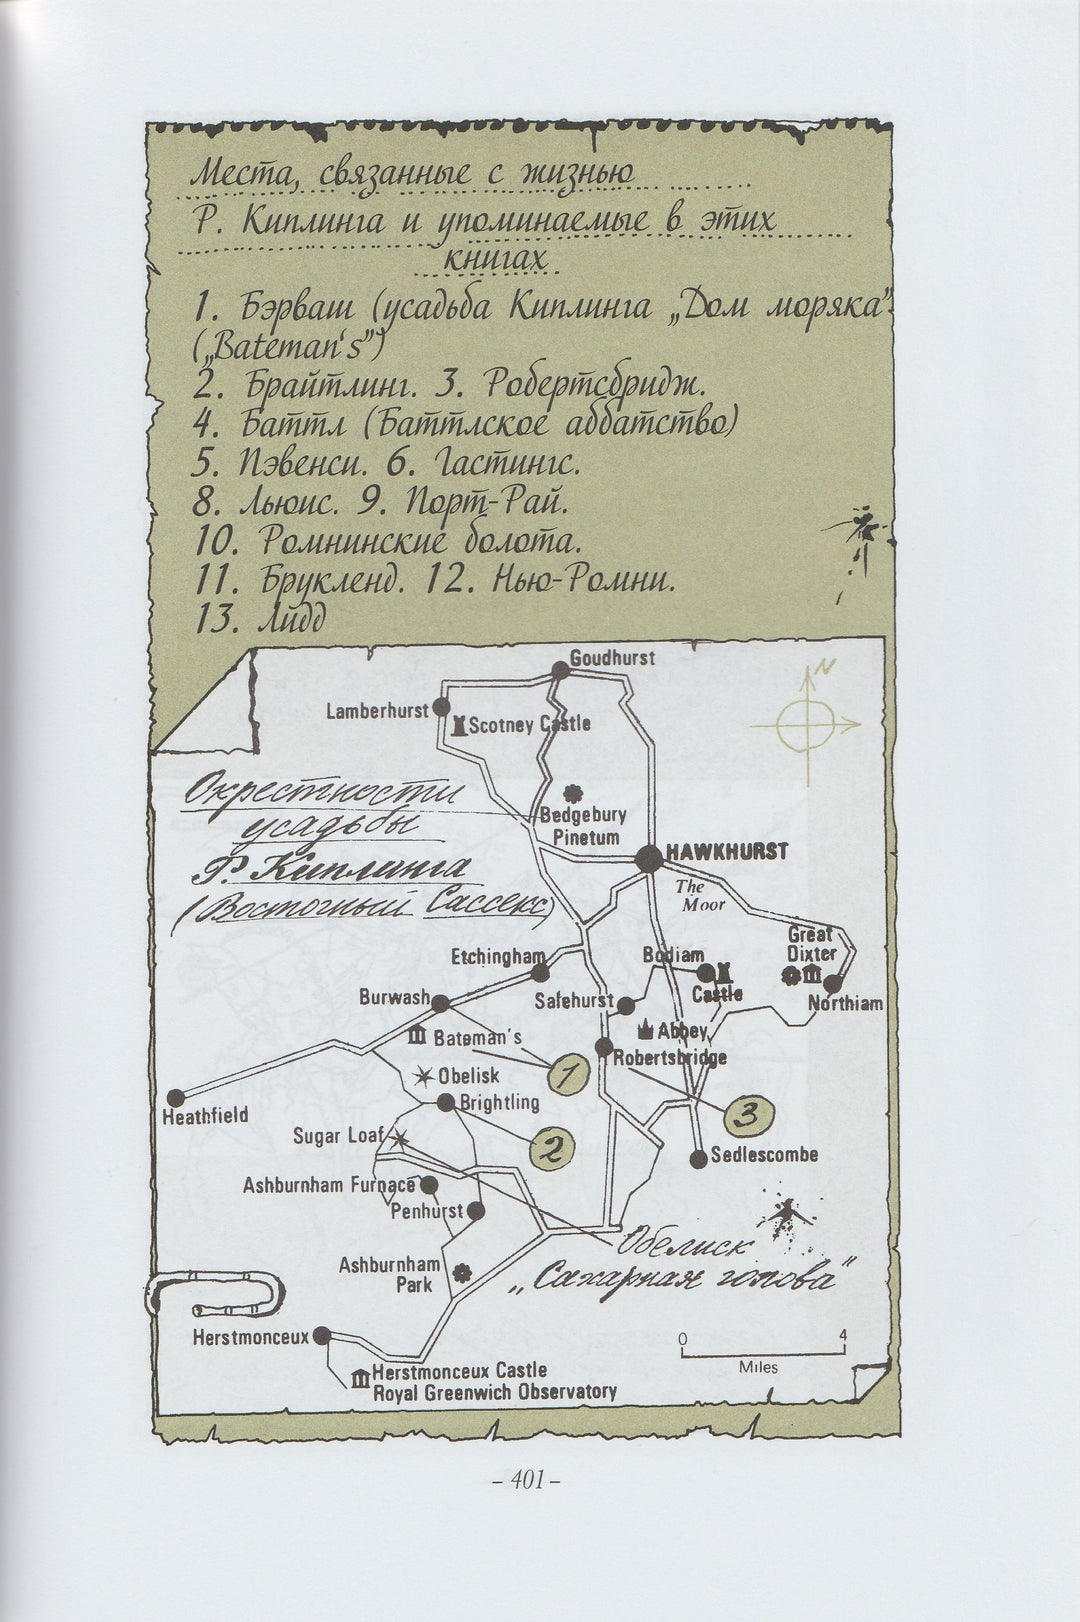 Места, связанные с жизнью
Р. Киплинга и упоминаемые в этих
книгах
1. Бэрваш (усадьба Киплинга „Дом моряка"
(„Bateman's")
2. Брайтлинг. 3. Робертсбридж.
4. Баттл (Баттлское аббатство)
5. Пэвенси. 6. Гастингс.
8. Льюис. 9. Порт-Рай.
10. Ромнинские болота.
11. Брукленд. 12. Нью-Ромни.
13. Лидд
Goudhurst
N
Lamberhurst
Scotney Castle
Окрестности
усадьбы
Р. Киплинга
(Восточный Сассекс)
Bedgebury
Pinetum
HAWKHURST
The
Moor
Great
Dixter
Northiam
Etchingham
Bodiam
Castle
Burwash
Salehurst
Bateman's
Abbey
Robertsbridge
Obelisk
1
Heathfield
Brightling
3
Sugar Loaf
2
Sedlescombe
Ashburnham Furnace
Penhurst
Обелиск
„Сахарная голова"
Ashburnham
Park
Herstmonceux
0 4
Miles
Herstmonceux Castle
Royal Greenwich Observatory
– 401 –